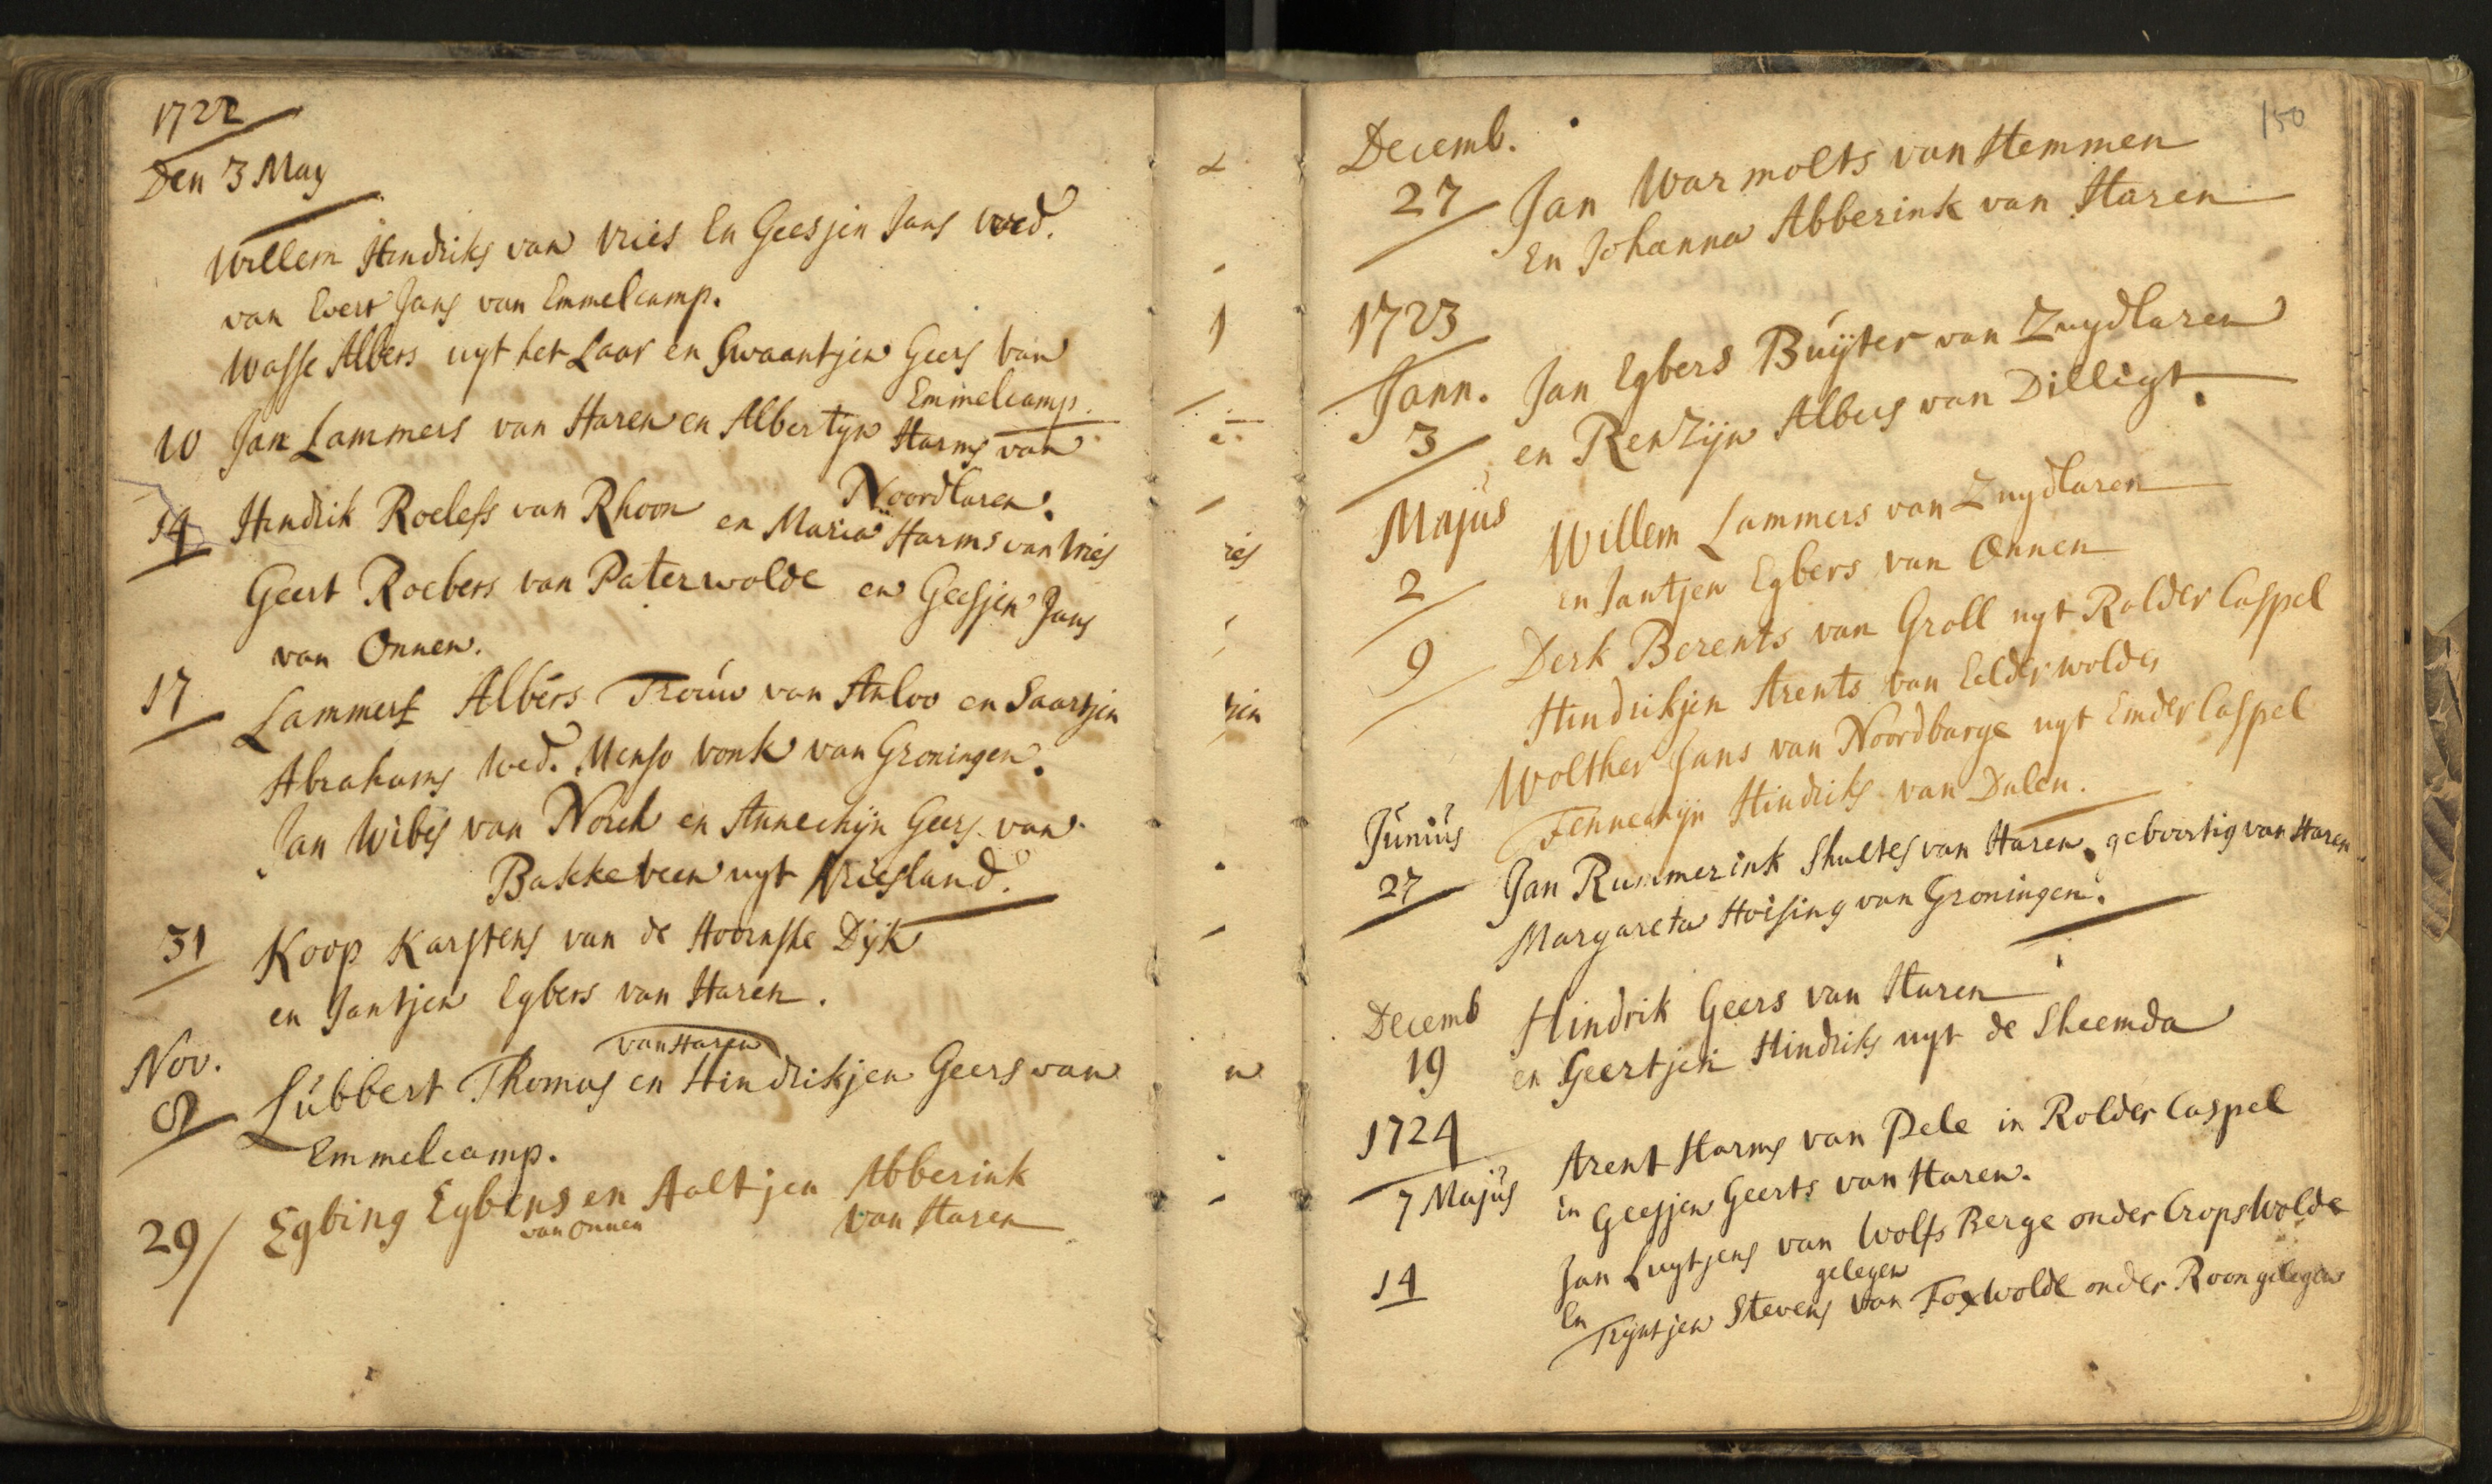 1722
Den 3 May
Willem Hindriks van Vries En Geesjen Jans wed.
van Evert Jans van Emmelcamp.
Wasse Albers uyt het Laar en Swaantjen Geers van
Emmelcamp.
10 Jan Lammers van Haren en Albertyn Harms van
Noordlaren.
14 Hindrik Roelefs van Rhoon en Maria Harms van Vries
Geert Roebers van Paterwolde en Geesjen Jans
van Onnen.
17 Lammert Albers Trouw van Anloo en Saartjen
Abrahams Wed. Menso Vonk van Groningen.
Jan Wibes van Norch en Annechijn Geers van
Bakkeveen uyt Vriesland.
31 Koop Karstens van de Hoornske Dijk
en Jantjen Egbers van Haren.
Nov.
van Haren
8 Lubbert Thomas en Hindrikjen Geers van
Emmelcamp.
29 Egbing Egbens en Aaltjen Abberink
van Onnen van Haren
ries
tjen
n
150
Decemb.
27 Jan Warmolts van Hemmen
En Johanna Abberink van Haren
1723
Jann. Jan Egbers Buijter van Zuydlaren
3 en Renzijn Albers van Dilligt.
Majus Willem Lammers van Zuydlaren
2 en Jantjen Egbers van Onnen
9 Derk Berents van Groll uyt Rolder Caspel
Hindrikjen Arents van Eelderwolde,
Wolther Jans van Noordbarge uyt Emder Caspel
Fennechijn Hindriks van Dalen.
Junius
27 Jan Rummerink Shultes van Haren, geboortig van Haren.
Margareta Hoising van Groningen.
Decemb Hindrik Geers van Haren
19 en Geertjen Hindriks uyt de Sheemda
1724
7 Majus Arent Harms van Pele in Rolder Caspel
in Geesjen Geerts van Haren.
14 Jan Luytjens van Wolfs Berge onder Cropswolde
gelegen
En Trijntjen Stevens van Foxwolde onder Roon gelegen